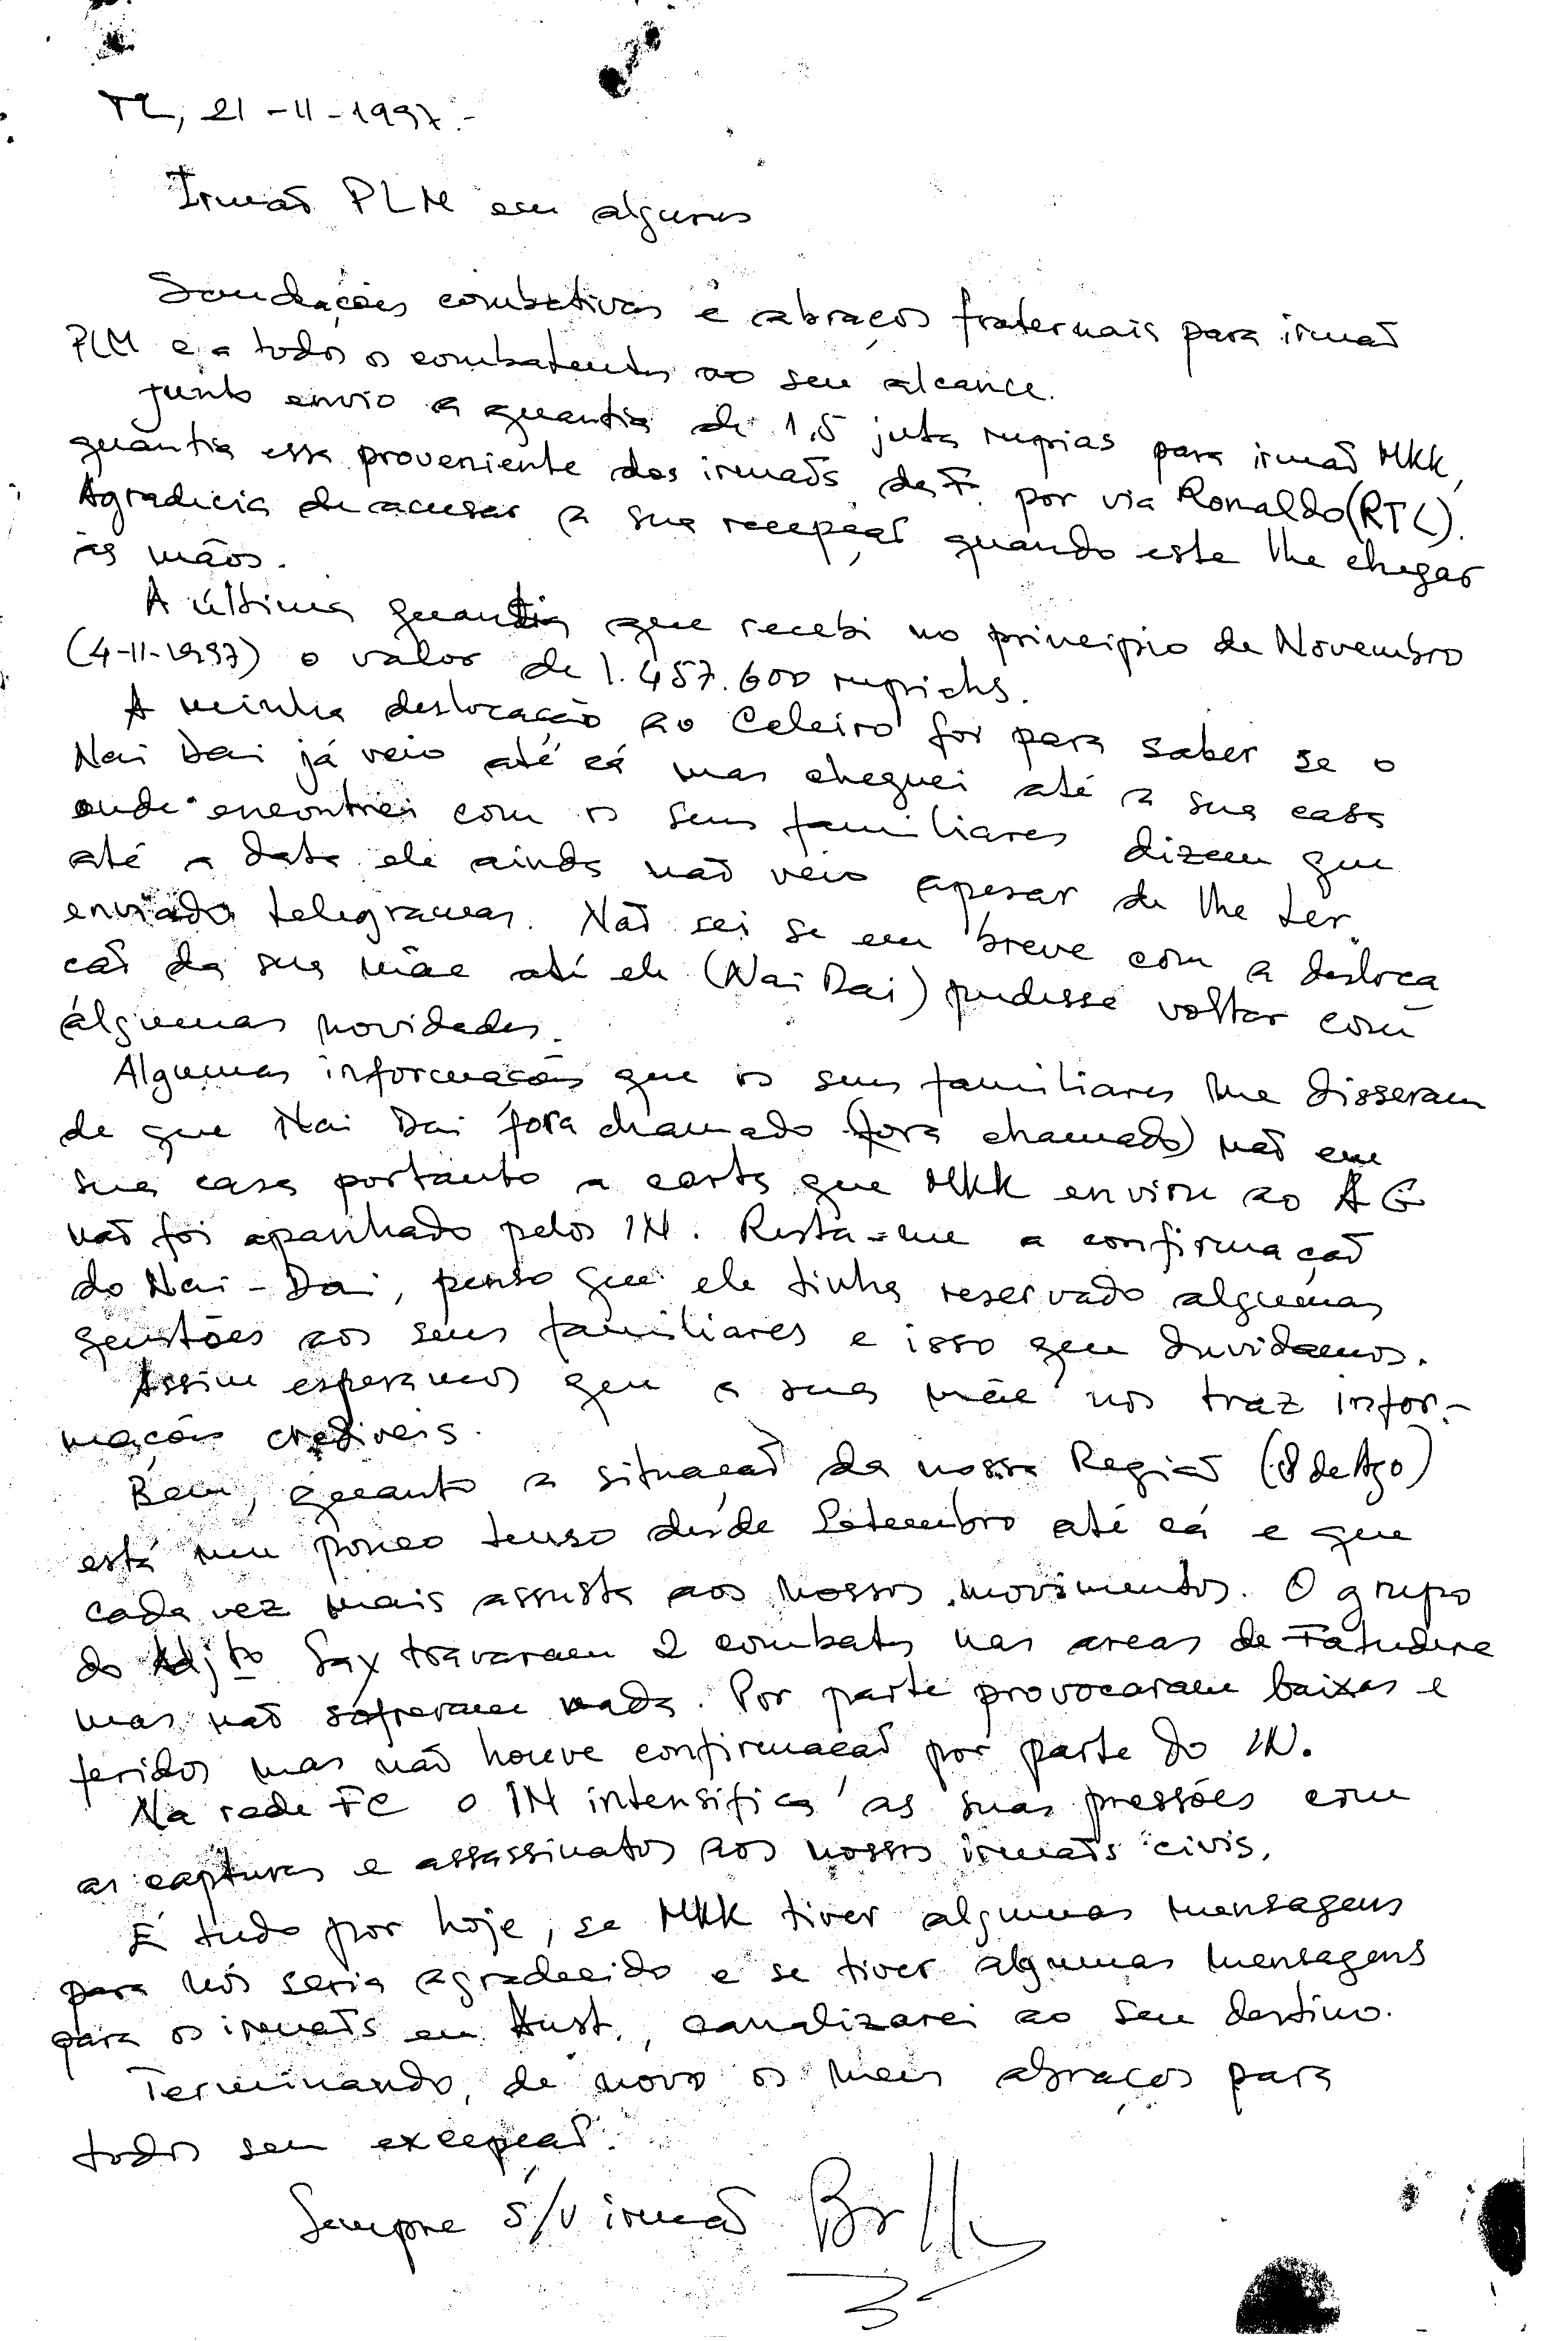 TL, 21-11-1997.-
Irmão PLM em algures
Saudações combativas e abraços fraternais para irmão
PLM e a todos os combatentes ao seu alcance.
Junto envio a quantia de 1,5 juta rupias para irmão MKK,
quantia essa proveniente dos irmãos da F. por via Ronaldo (RTL).
Agradecia de acusar a sua recepção quando este lhe chegar
às mãos.
A última quantia que recebi no principio de Novembro
(4-11-1997) o valor de 1.457.600 rupiahs.
A minha deslocação ao Celeiro foi para saber se o
Nai Dai já veio até cá mas cheguei até a sua casa
onde encontrei com os seus familiares dizem que
até a data ele ainda não veio apesar de lhe ter
enviado telegramas. Não sei se em breve com a desloca
cão da sua mãe até ele (Nai Dai) pudesse voltar com
algumas novidades.
Algumas informações que os seus familiares me disseram
de que Nai Dai fora chamado (fora chamado) não em
sua casa portanto a carta que MKK enviou ao AG
não foi apanhado pelos IN. Resta-me a confirmação
do Nai-Dai, penso que ele tinha reservado algumas
questões aos seus familiares e isso que duvidamos.
Assim esperamos que a sua mãe nos traz infor-
mações crediveis.
Bem, quanto a situação da nossa Região (8 de Ago)
está um pouco tenso desde Setembro até cá e que
cada vez mais assusta aos nossos movimentos. O grupo
do Adjto Sax travaram 2 combates nas areas de Fatudere
mas não sofreram nada. Por parte provocaram baixas e
feridos mas não houve confirmação por parte do IN.
Na rede FC o IN intensifica as suas pressões com
as capturas e assassinatos aos nossos irmãos civis.
É tudo por hoje, se MKK tiver algumas mensagens
para nós seria agradecido e se tiver algumas mensagens
para os irmãos em Aust., canalizarei ao seu destino.
Terminando, de novo os meus abraços para
todos sem excepção.
Sempre s/v irmão